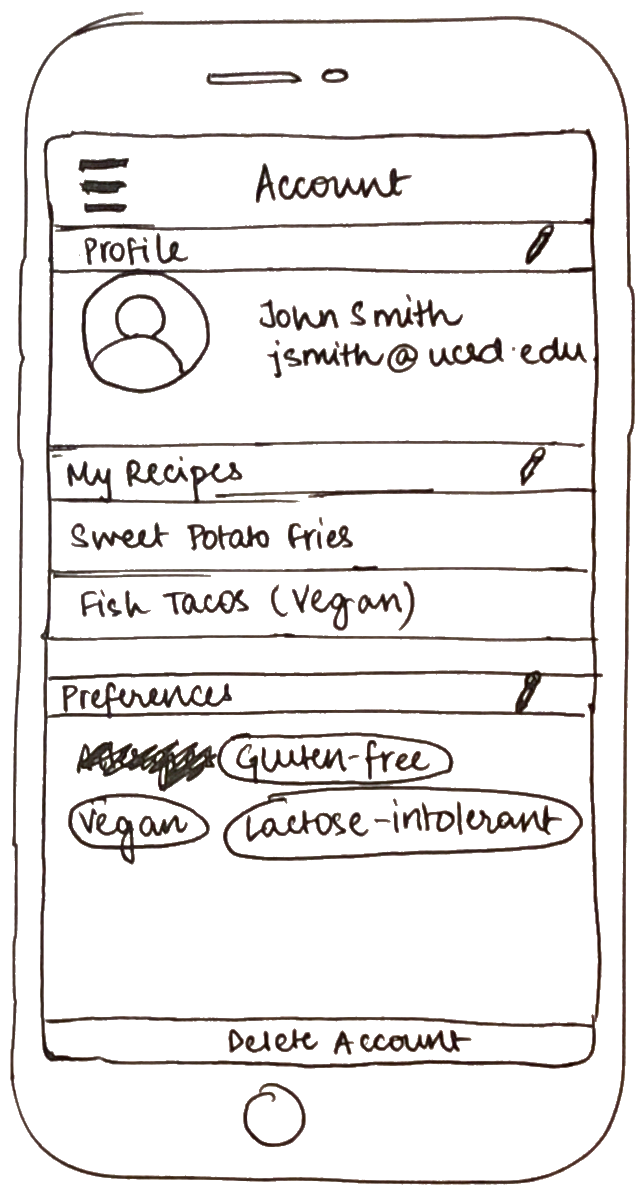 Account
Profile
John Smith
jsmith@ucsd.edu
My Recipes
Sweet Potato Fries
Fish Tacos (Vegan)
Preferences
Gluten-free
Vegan Lactose-intolerant
Delete Account